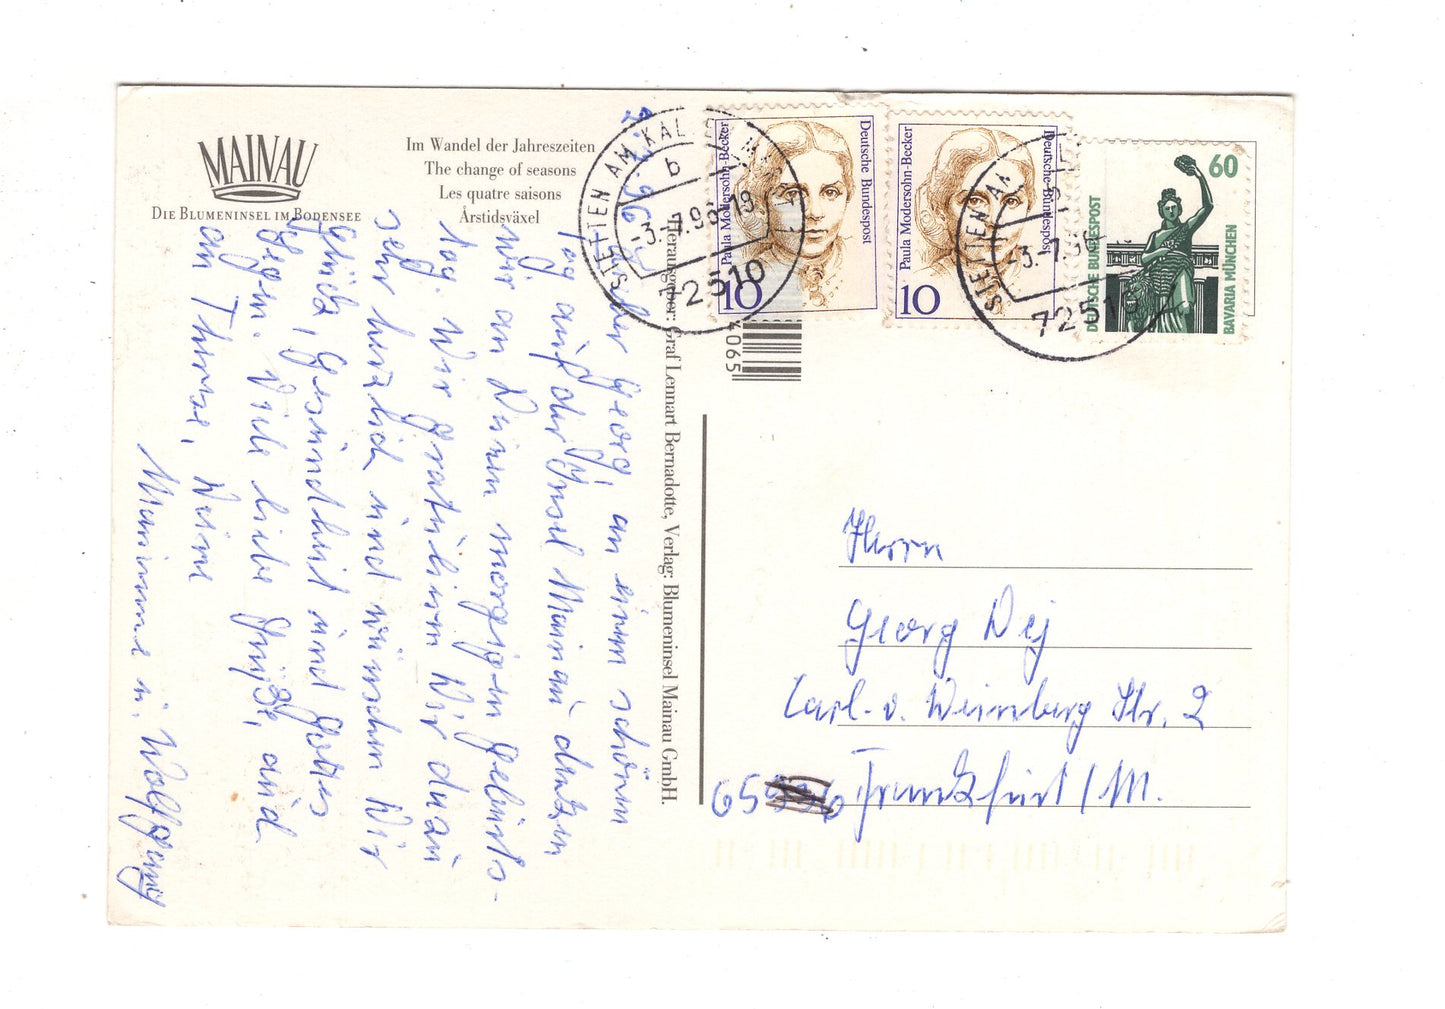 MAINAU
DIE BLUMENINSEL IM BODENSEE
Im Wandel der Jahreszeiten
The change of seasons
Les quatre saisons
Årstidsväxel
Lieber Georg, an einem schönen
Tag auf der Insel Mainau denken
wir an Deinen morgigen Geburts-
tag. Wir gratulieren Dir dazu
sehr herzlich und wünschen Dir
Glück, Gesundheit und Gottes
Segen. Viele liebe Grüße, auch
an Therese, Deine
Mamma u. Wolfgang
Herausgeber: Graf Lennart Bernadotte, Verlag: Blumeninsel Mainau GmbH.
4065
Paula Modersohn-Becker
Deutsche Bundespost
10
Paula Modersohn-Becker
Deutsche Bundespost
10
60
DEUTSCHE BUNDESPOST
BAVARIA MÜNCHEN
STETTEN AM KALTEN MARKT
b
-3.-7.96-18
72510
STETTEN AM
-3.-7.96
72510
Herrn
Georg Dej
Carl-v. Weinberg Str. 2
Frankfurt/M.